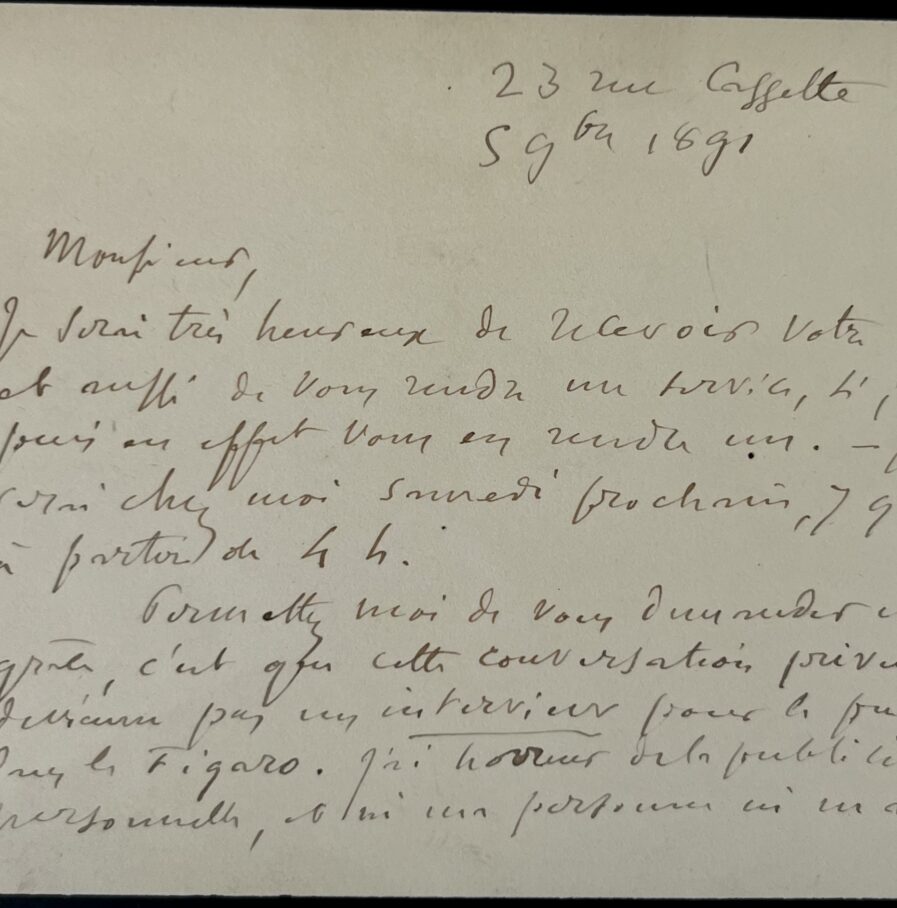 23 rue Cassette
5 9bre 1891
Monsieur,
Je serai très heureux de recevoir votre
et aussi de vous rendre un service, si,
puis en effet vous en rendre un. —
serai chez moi samedi prochain, 7 9
à partir de 4 h.
Permettez moi de vous demander
grâce, c'est que cette conversation privée
devienne pas un interview pour le
dans le Figaro. J'ai horreur de la
personnelle, et ni ma personne ni